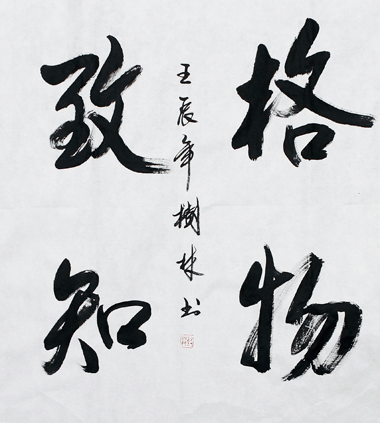 格物
致知
壬辰年樹林书